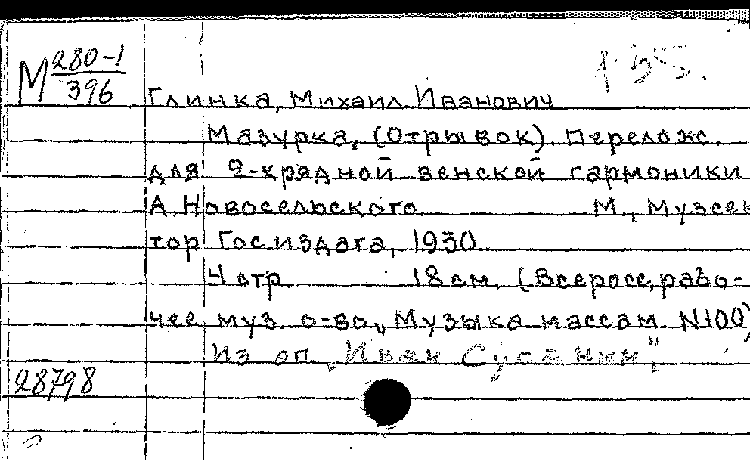 М 280-1
396
Глинка, Михаил Иванович
Мазурка, (Отрывок). Перелож.
для 2-хрядной венской гармоники
А. Новосельского М., Музсек
тор Госиздата, 1930
4 стр 18 см. (Всеросс, рабо-
чее муз. о-во, "Музыка массам N100)
Из оп. "Иван Сусанин"
28798